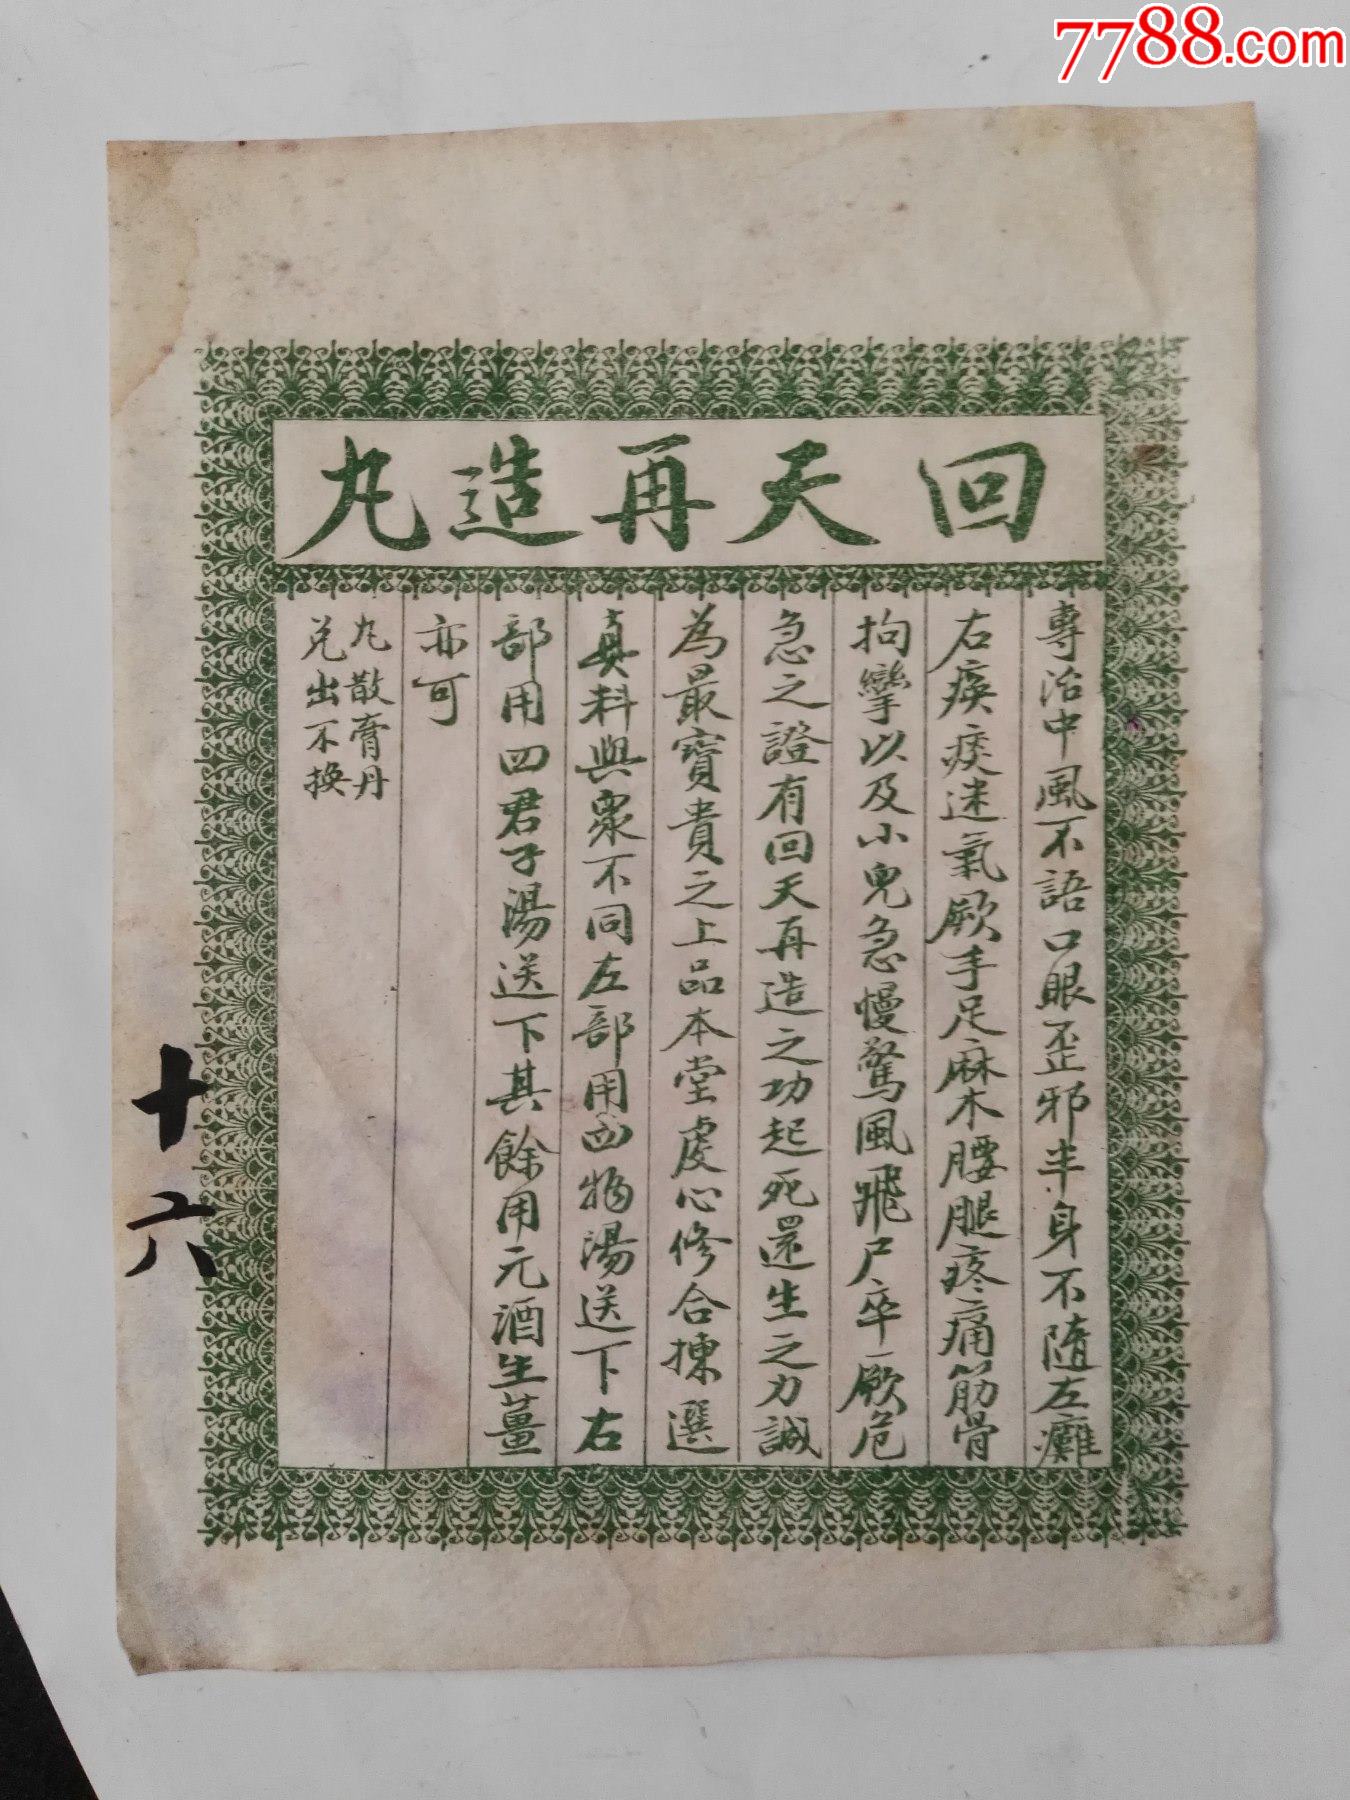 7788.com
回天再造丸
專治中風不語口眼歪邪半身不隨左癱
右瘓痰迷氣厥手足麻木腰腿疼痛筋骨
拘攣以及小兒急慢驚風飛尸卒厥危
急之證有回天再造之功起死還生之力誠
為最寶貴之上品本堂虔心修合揀選
真料與眾不同左部用四物湯送下右
部用四君子湯送下其餘用元酒生薑
亦可
丸散膏丹
兌出不換
十六